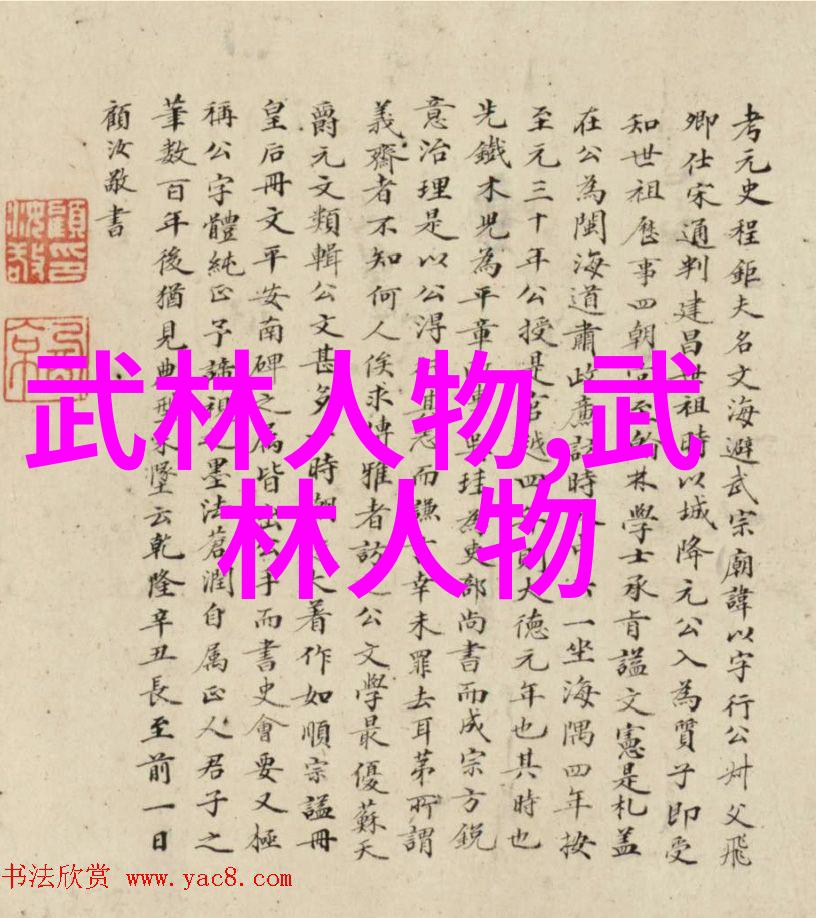 考元史程鉅夫名文海避武宗廟諱以字行公叔父飛
卿仕宋通判建昌世祖時以城降元公入為質子即受
知世祖歷事四朝官至翰林學士承旨諡文憲是札蓋
在公為閩海道肅政廉訪時一坐海隅四年按
至元三十年公授是官越四則大德元年也其時也
先鐵木児為平章珪為吏部尚書而成宗方銳
意治理是以公得行其志而謙言幸未罪去耳苐所謂
義齋者不知何人俟求博雅者訪之公文學最優蘇天
爵元文類輯公文甚多時大著作如順宗諡冊
皇后冊文平安南碑之屬皆出公手而書史會要又極
稱公字體純正予諦視之墨法蒼潤自属正人君子之
筆數百年後猶見典型不墜云乾隆辛丑長至前一日
顧汝敬書
武林人物,武
林人物
书法欣赏 www.yac8.com